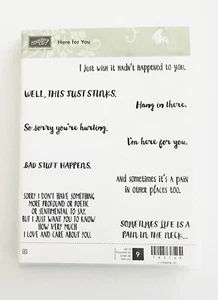 Here for You
I just wish it hadn't happened to you.
WELL, THIS JUST STINKS.
Hang in there.
So sorry you're hurting.
I'm here for you.
BAD STUFF HAPPENS.
And sometimes it's a pain
in other places too.
SORRY I DON'T HAVE SOMETHING
MORE PROFOUND OR POETIC
OR SENTIMENTAL TO SAY,
BUT I JUST WANT YOU TO KNOW
HOW VERY MUCH
I LOVE AND CARE ABOUT YOU.
SOMETIMES LIFE IS A
PAIN IN THE NECK...
9